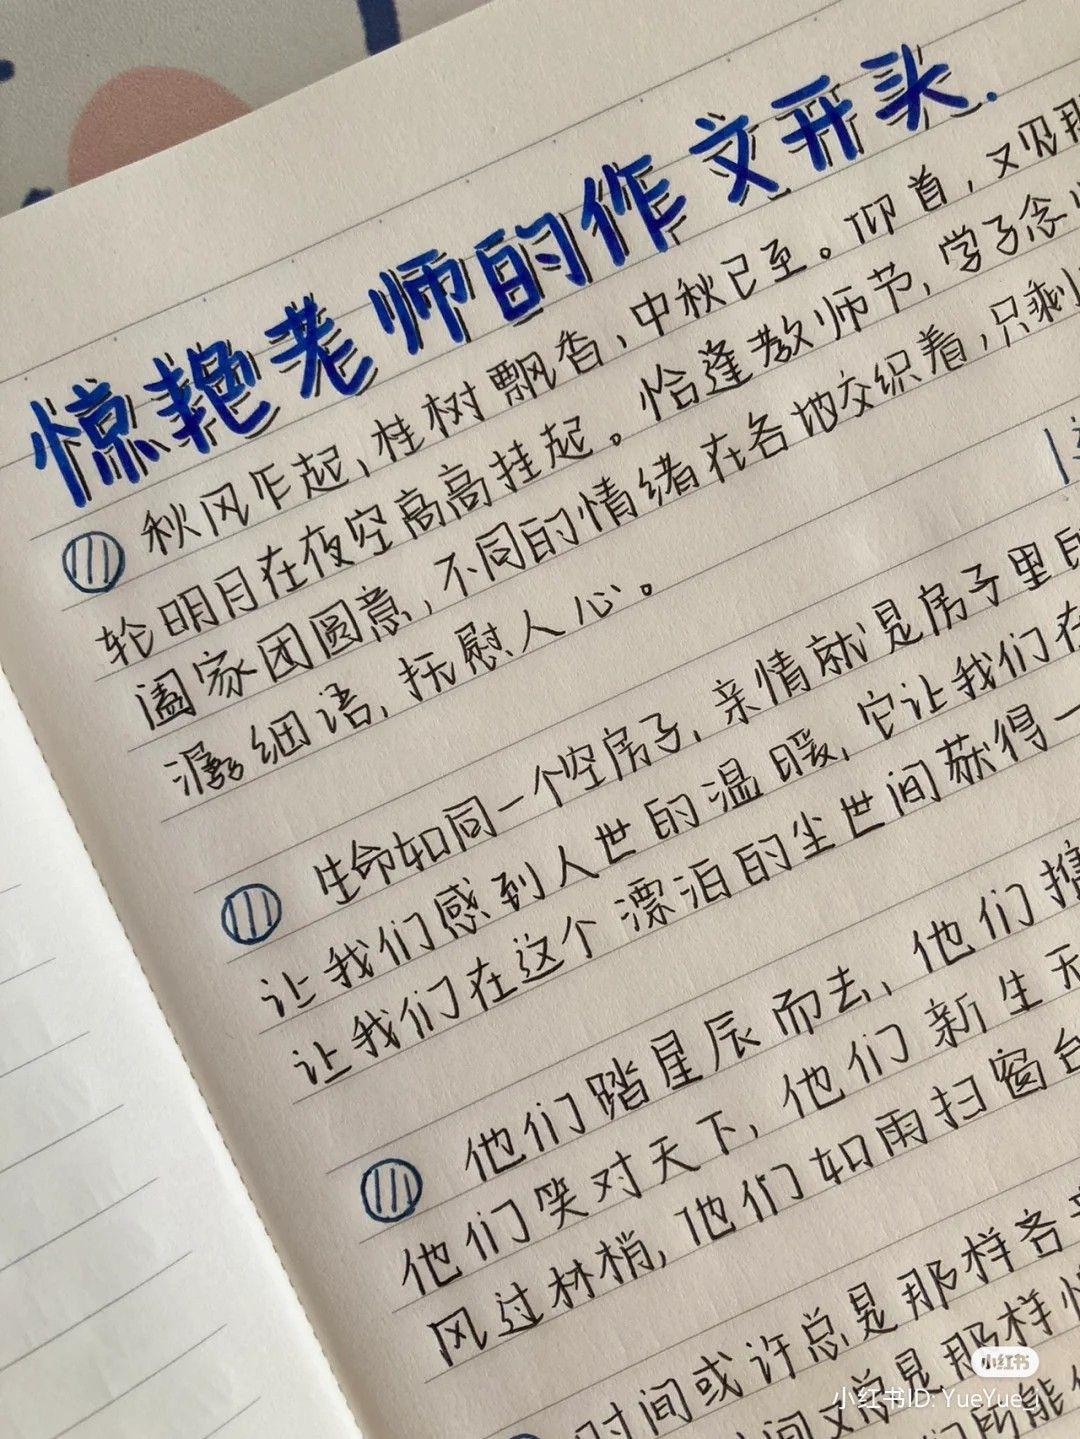 惊艳老师的作文开头.
秋风乍起,桂树飘香,中秋已至。仰首,又见那
轮明月在夜空高高挂起。恰逢教师节,学子念
阖家团圆意,不同的情绪在各地交织着,只剩
潺细语,抚慰人心。
生命如同一个空房子,亲情就是房子里的
让我们感到人世的温暖,它让我们在
让我们在这个漂泊的尘世间获得一
他们踏星辰而去,他们携
他们笑对天下,他们新生无
风过林梢,他们如雨扫窗台
时间或许总是那样各
间又总是那样
们所能
小红书
小红书ID: YueYue